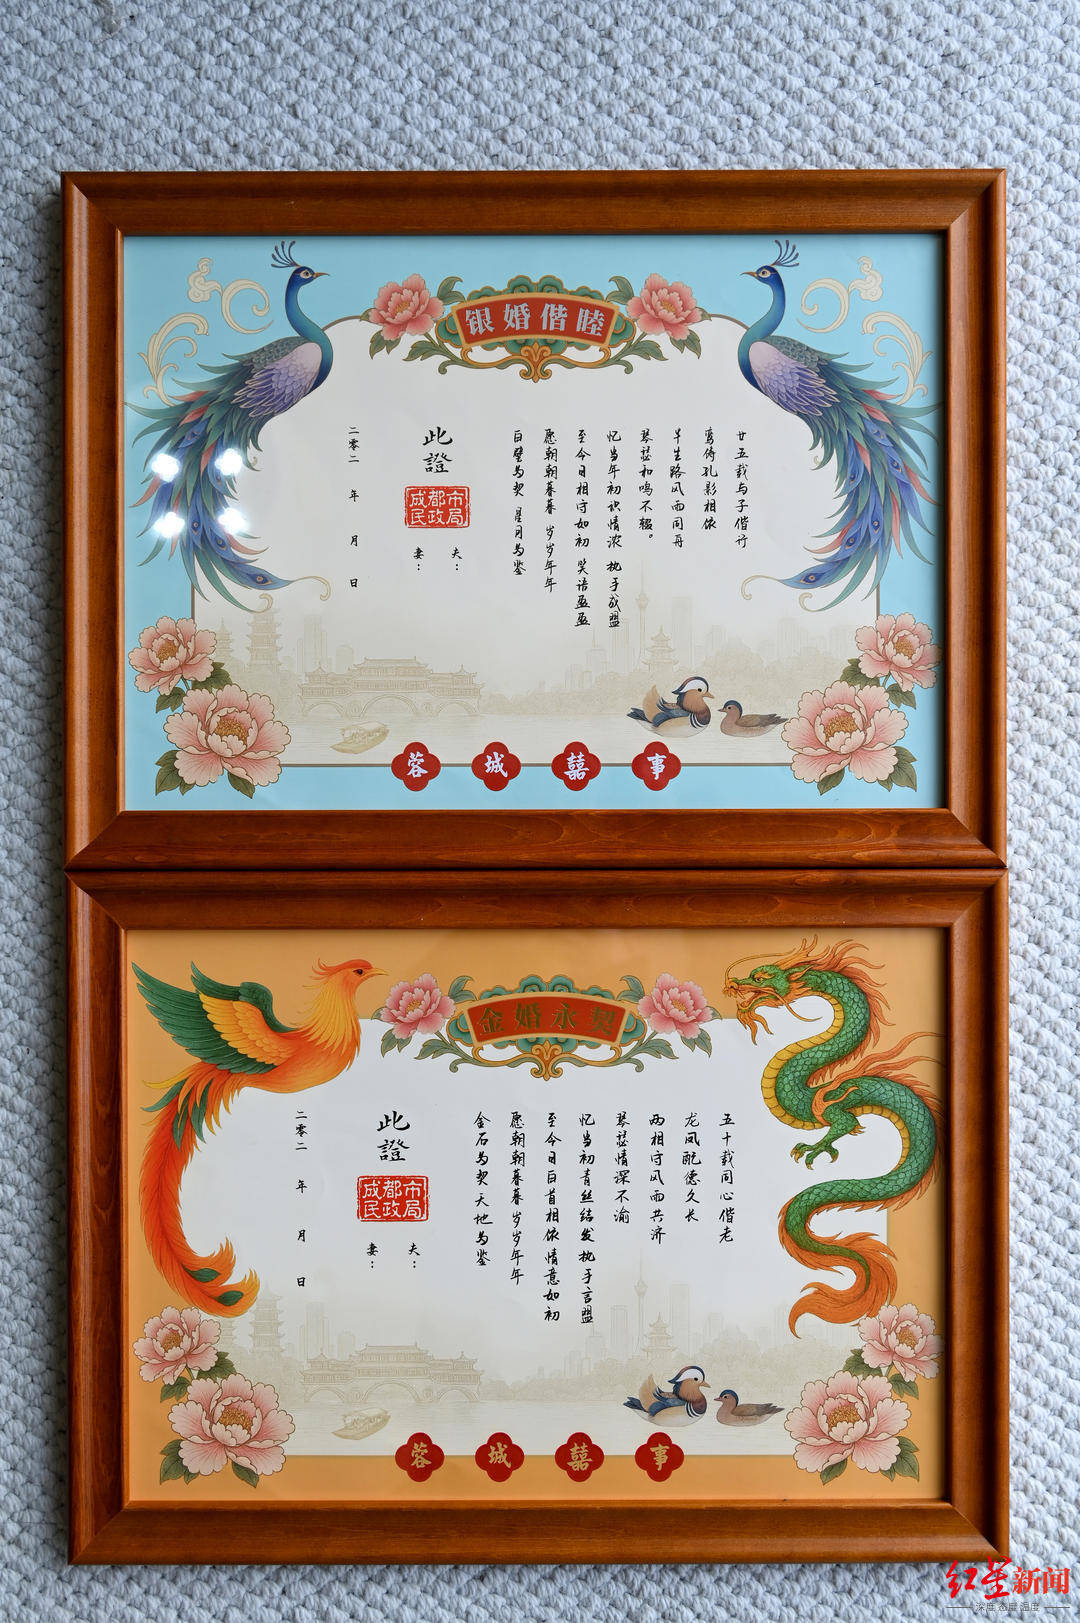 银婚偕睦
廿五载与子偕行
鸾俦孔影相依
半生路风雨同舟
琴瑟和鸣不辍。
忆当年初识情浓 执手成盟
至今日相守如初 笑语盈盈
愿朝朝暮暮 岁岁年年
白璧为契 星月为鉴
此證
成都市
民政局
夫：
妻：
二零二 年 月 日
蓉城囍事
金婚永契
五十载同心偕老
龙凤配德久长
两相守风雨共济
琴瑟情深不渝
忆当初青丝结发 执手言盟
至今日白首相依 情意如初
愿朝朝暮暮 岁岁年年
金石为契 天地为鉴
此證
成都市
民政局
夫：
妻：
二零二 年 月 日
蓉城囍事
红星新闻
深度 态度 温度